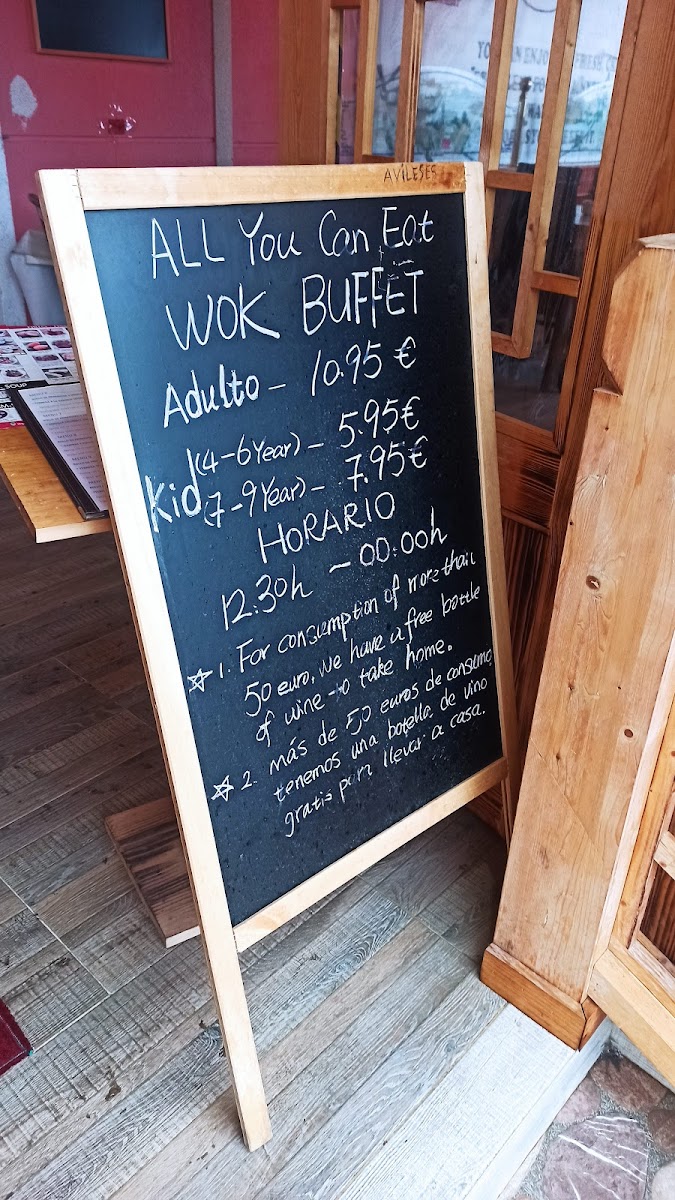 AVILESES
ALL You Can Eat
WOK BUFFET
Adulto - 10.95 €
Kid (4-6 Year) - 5.95 €
(7-9 Year) - 7.95 €
HORARIO
12.30h - 00.00h
☆ 1. For consumption of more than
50 euro, we have a free bottle
of wine to take home.
☆ 2. más de 50 euros de consumo
tenemos una botella de vino
gratis para llevar a casa.
SOUP